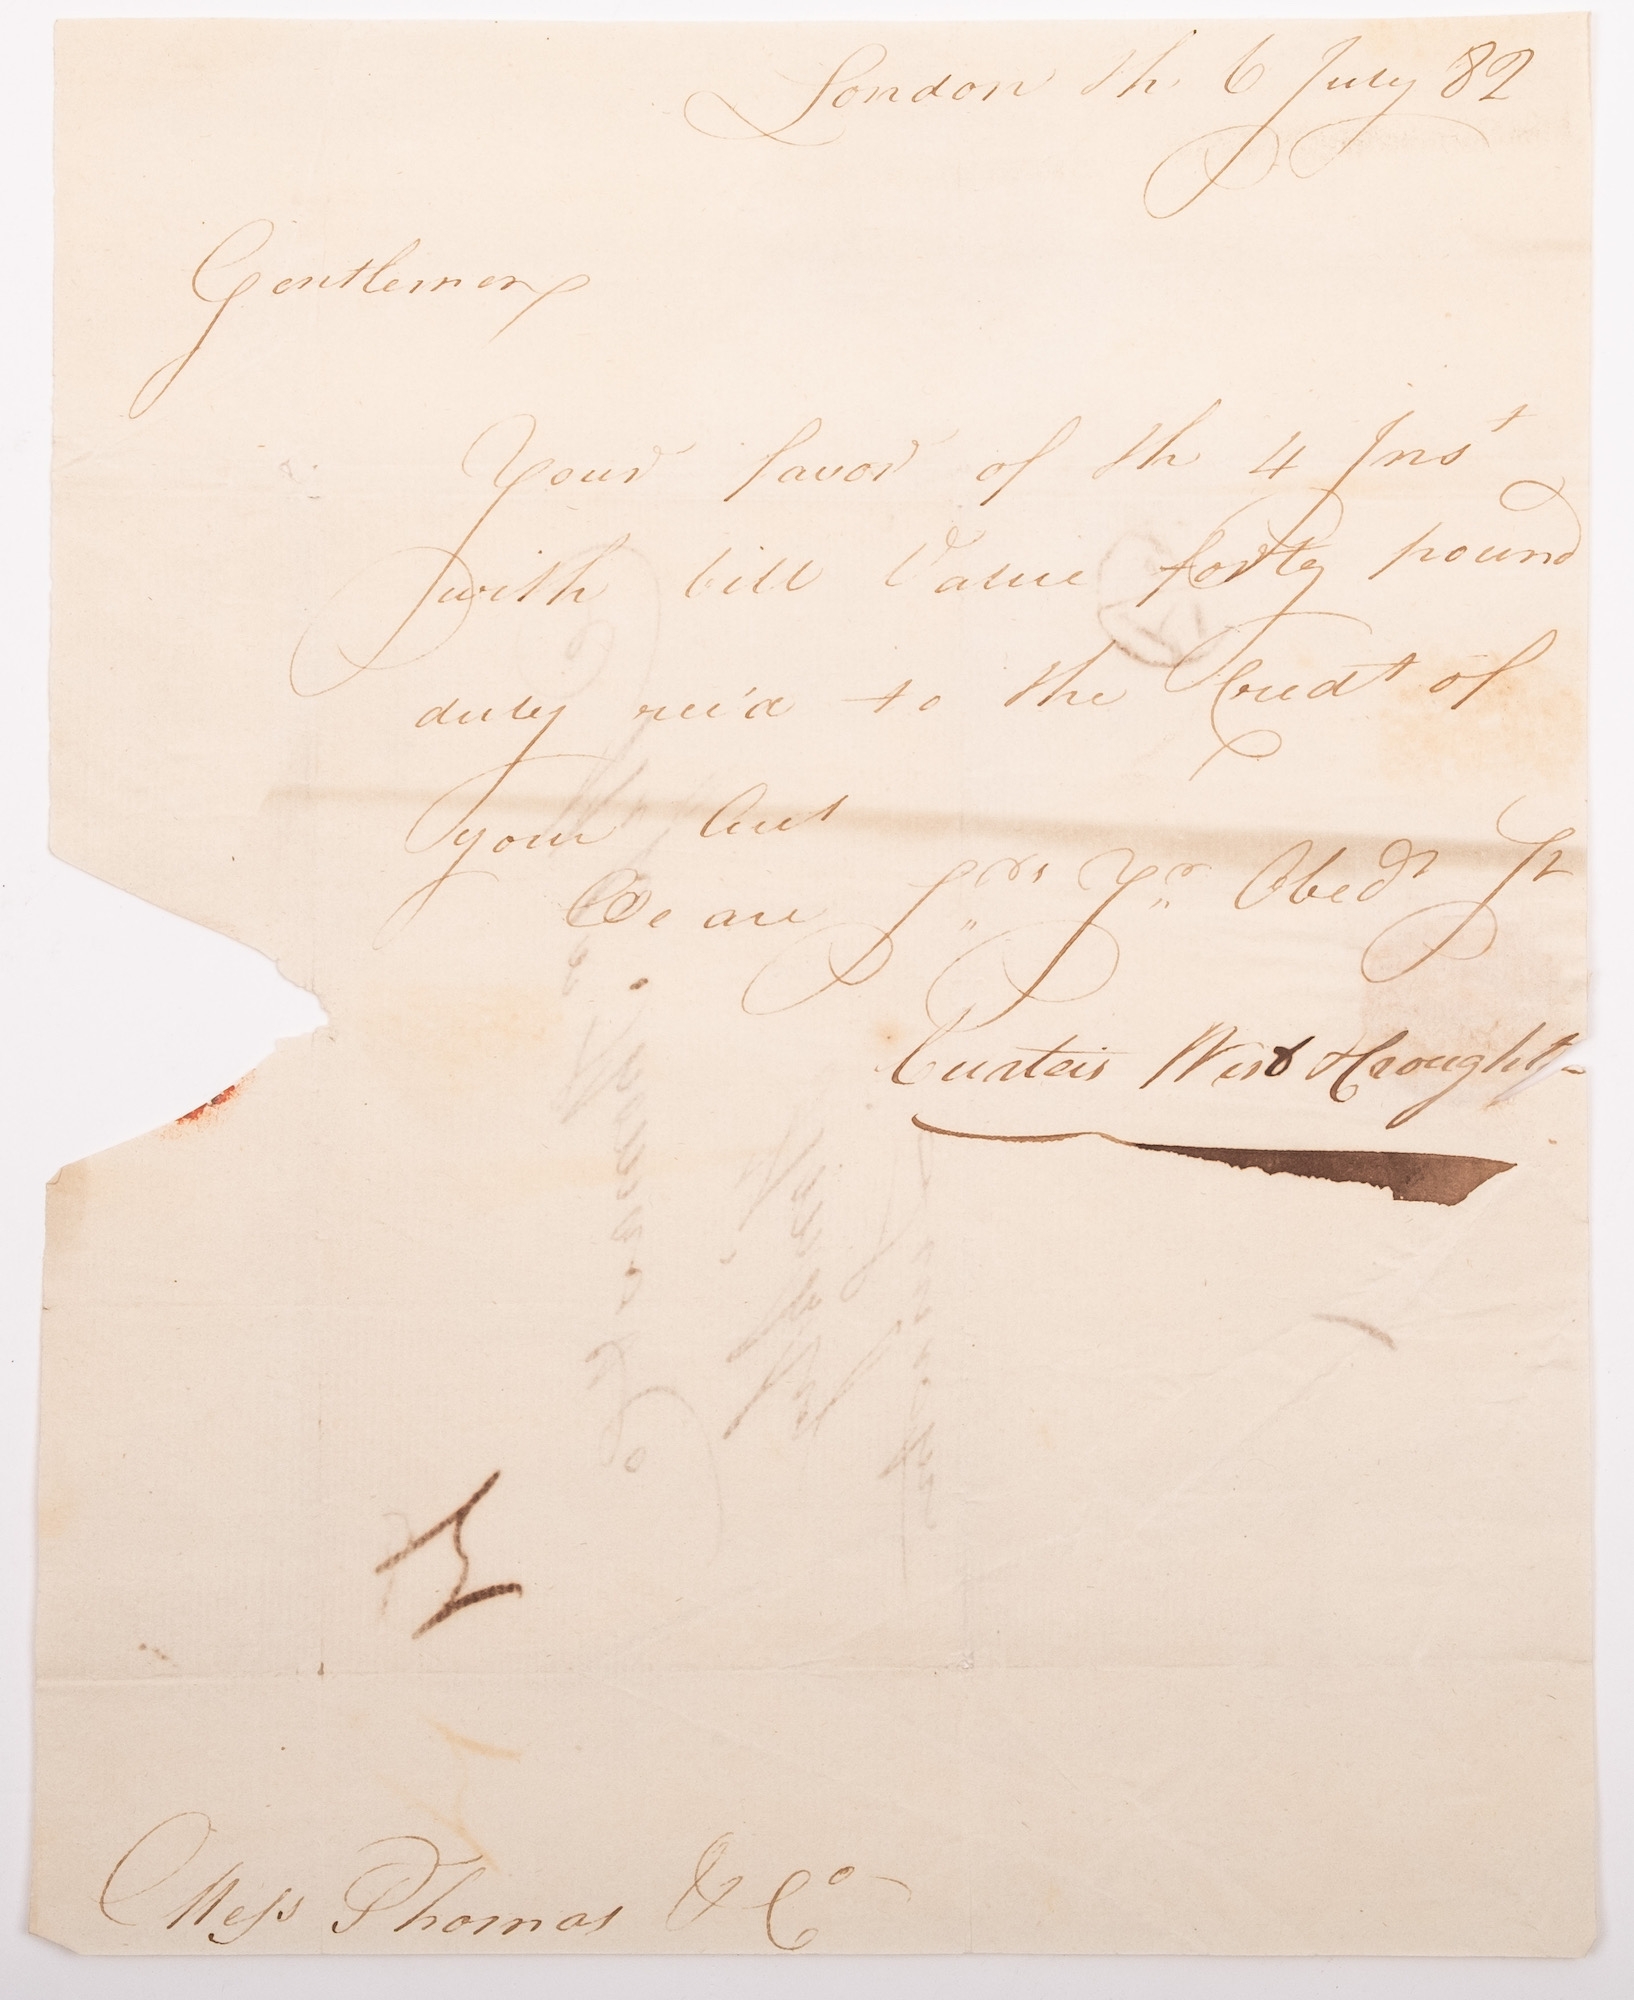 London th 6 July 82
Gentlemen
Your favor of th 4 Inst
with bill Value forty pound
duly rec'd to the Credt of
your Acct
We are Srs Yr Obedt St
Curteis West &
Mess Thomas & Co